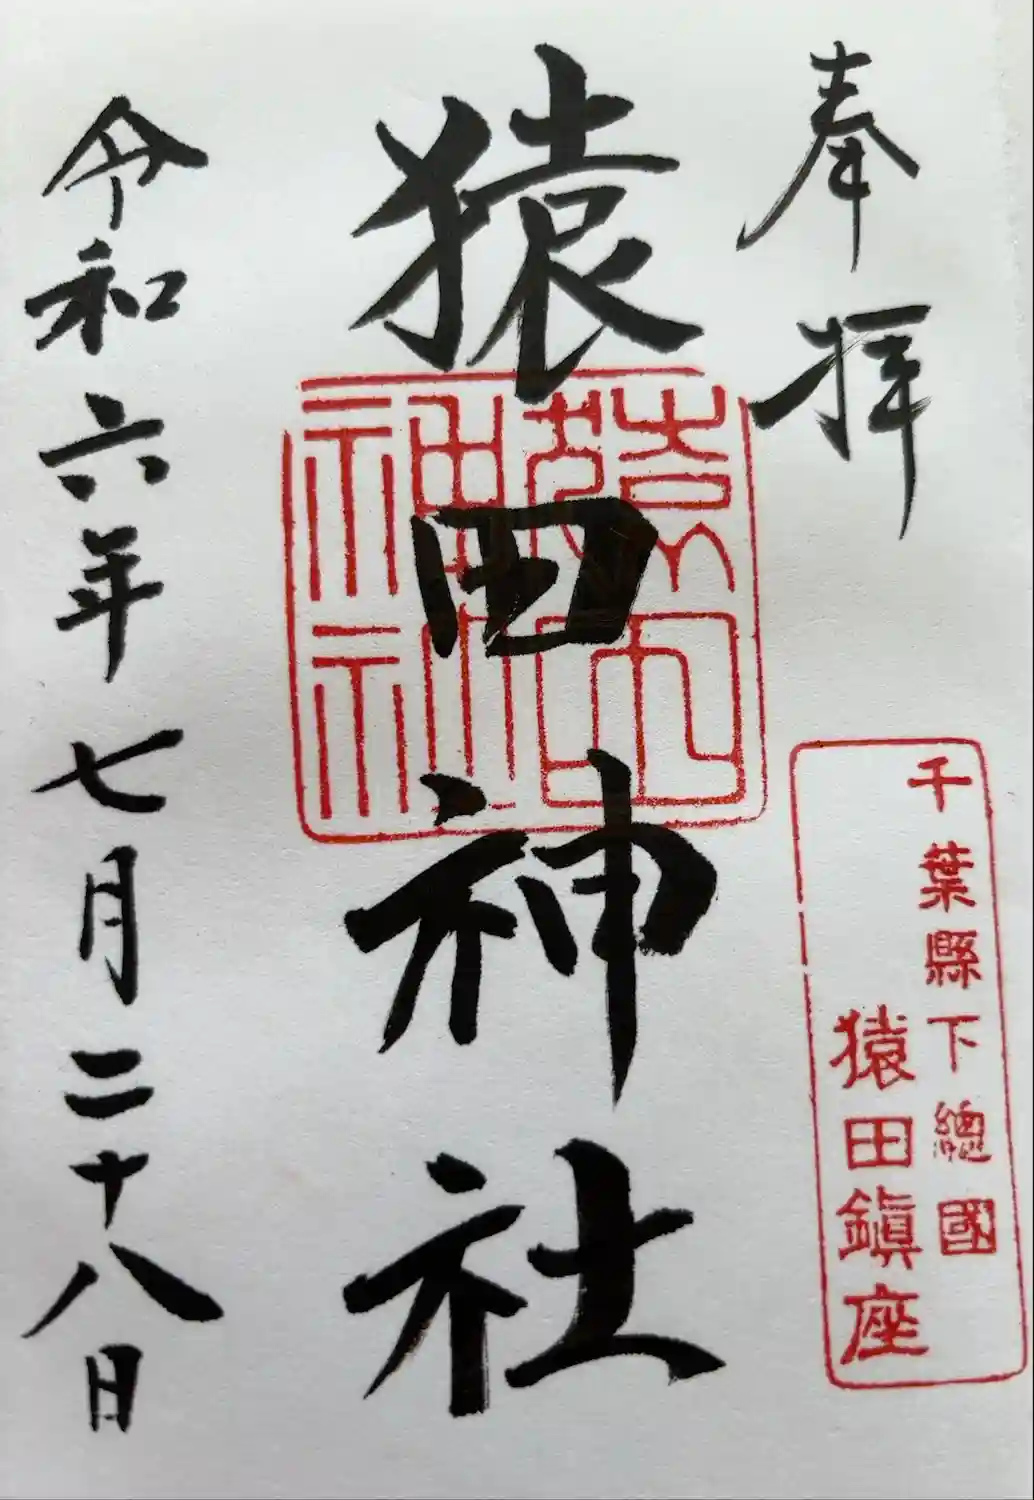 奉拝
千葉縣下總國
猿田鎭座
猿田神社
猿田神社
令和六年七月二十八日